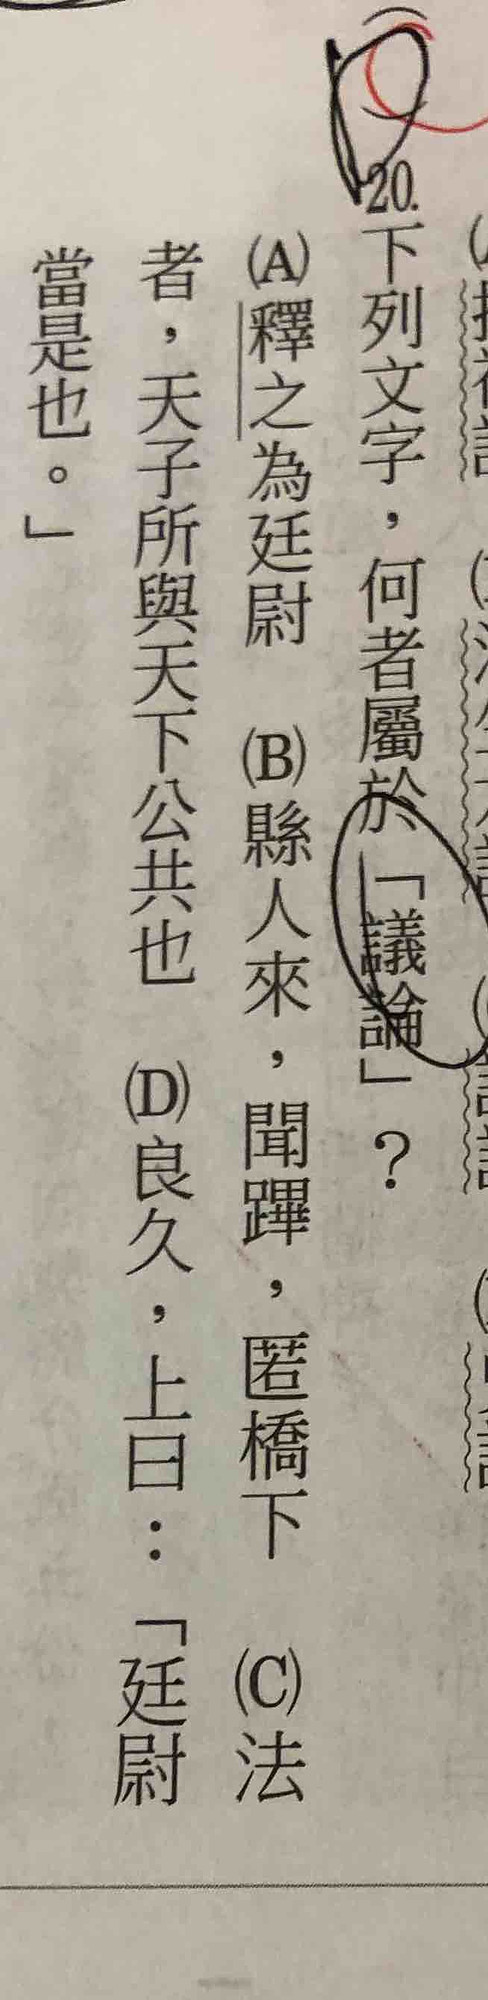 20.下列文字，何者屬於「議論」？
(A)釋之為廷尉　(B)縣人來，聞蹕，匿橋下　(C)法
者，天子所與天下公共也　(D)良久，上曰：「廷尉
當是也。」